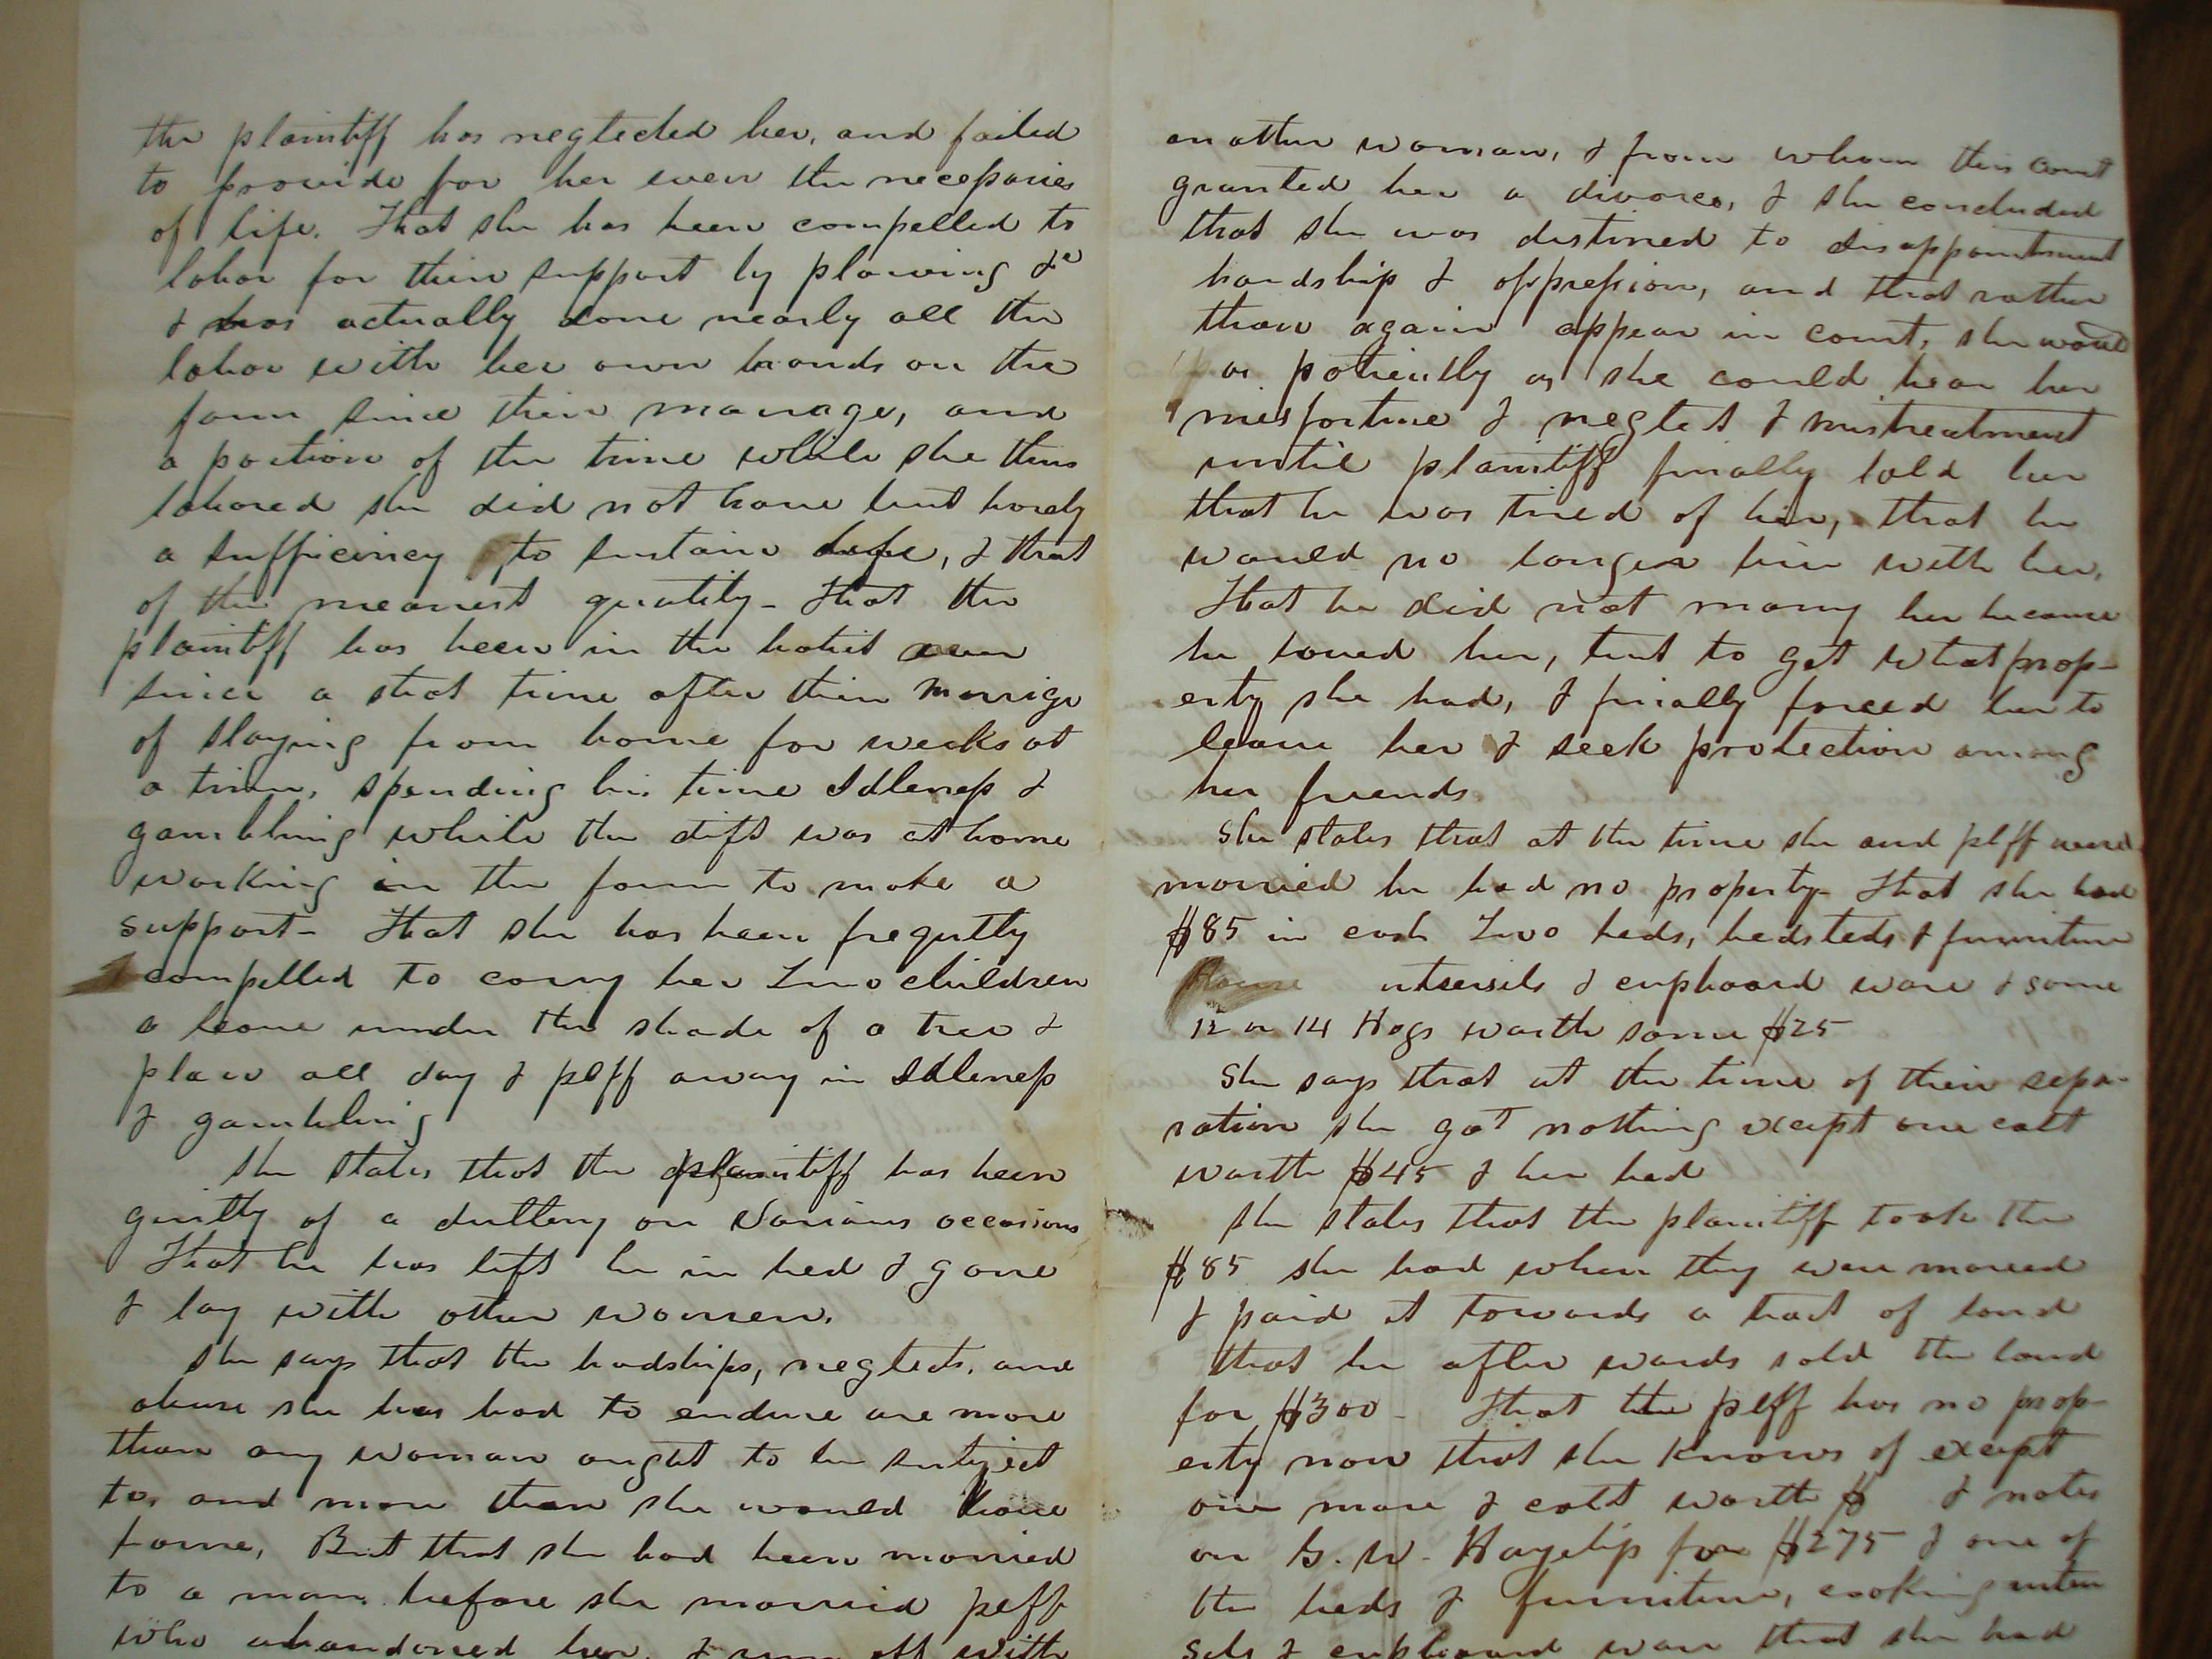 the plaintiff has neglected her, and failed
to provide for her even the necessaries
of life. That she has been compelled to
labor for their support by plowing &c
& has actually done nearly all the
labor with her own hands on the
farm since their marriage, and
a portion of the time while she thus
labored she did not have but barely
a sufficiency to sustain life, & that
of the meanest quality - That the
plaintiff has been in the habit ever
since a short time after their marrige
of staying from home for weeks at
a time, spending his time Idleness &
gambling while the dift was at home
working in the farm to make a
support - That she has been frequtly
compelled to carry her Two children
& leave under the shade of a tree &
plow all day & plff away in Idleness
& gambling
She states that the plaintiff has been
guilty of adultery on various occasions
That he has left he in bed & gone
& lay with other women.
She says that the hadships, neglects, and
abuse she has had to endure are more
than any woman ought to be subject
to, and more than she would have
borne, But that she had been married
to a man before she married plff
who abandoned her, & run off with
another woman, & from whom this court
granted her a divorce, & she concluded
that she was destined to disappointment
hardship & oppression, and that rather
than again appear in court, she would
as patiently as she could bear her
misfortune & neglect & mistreatment
until plaintiff finally told her
that he was tired of her, that he
would no longer live with her.
That he did not marry her because
he loved her, but to get what prop-
erty she had, & finally forced her to
leave her & seek protection among
her friends
She states that at the time she and plff were
married he had no property - That she had
$85 in cash Two beds, bedsteds & furniture
utensils & cupboard ware & some
12 or 14 Hogs worth some $25
She says that at the time of their sepa-
ration she got nothing except one colt
worth $45 & her bed
She states that the plaintiff took the
$85 she had when they were maried
& paid it towards a tract of land
that he after wards sold the land
for $300 - That the plff has no prop-
erty now that she knows of except
one mare & colt worth $ & notes
on G. W. Hayslip for $275 & one of
the beds & furniture, cooking uten
sils & cupboard ware that she had